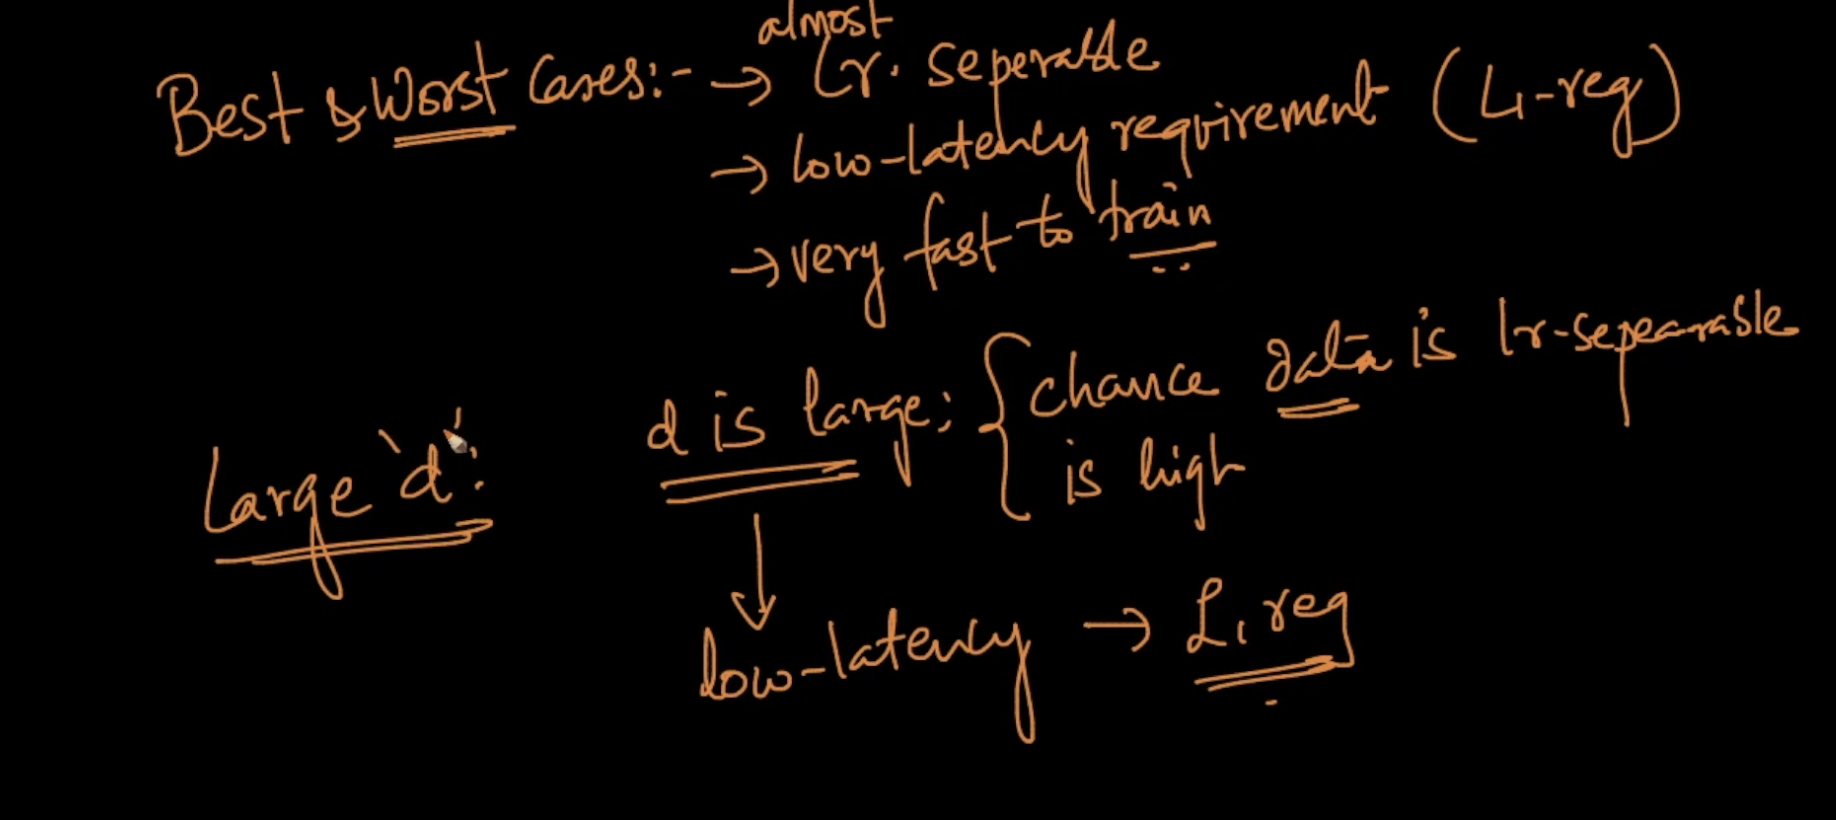 almost
Best & Worst Cases:- → Lr. seperable
→ low-latency requirement (L1-reg)
→ very fast to train
Large 'd': d is large; { chance data is lr-sepearable
is high
low-latency → L1 reg